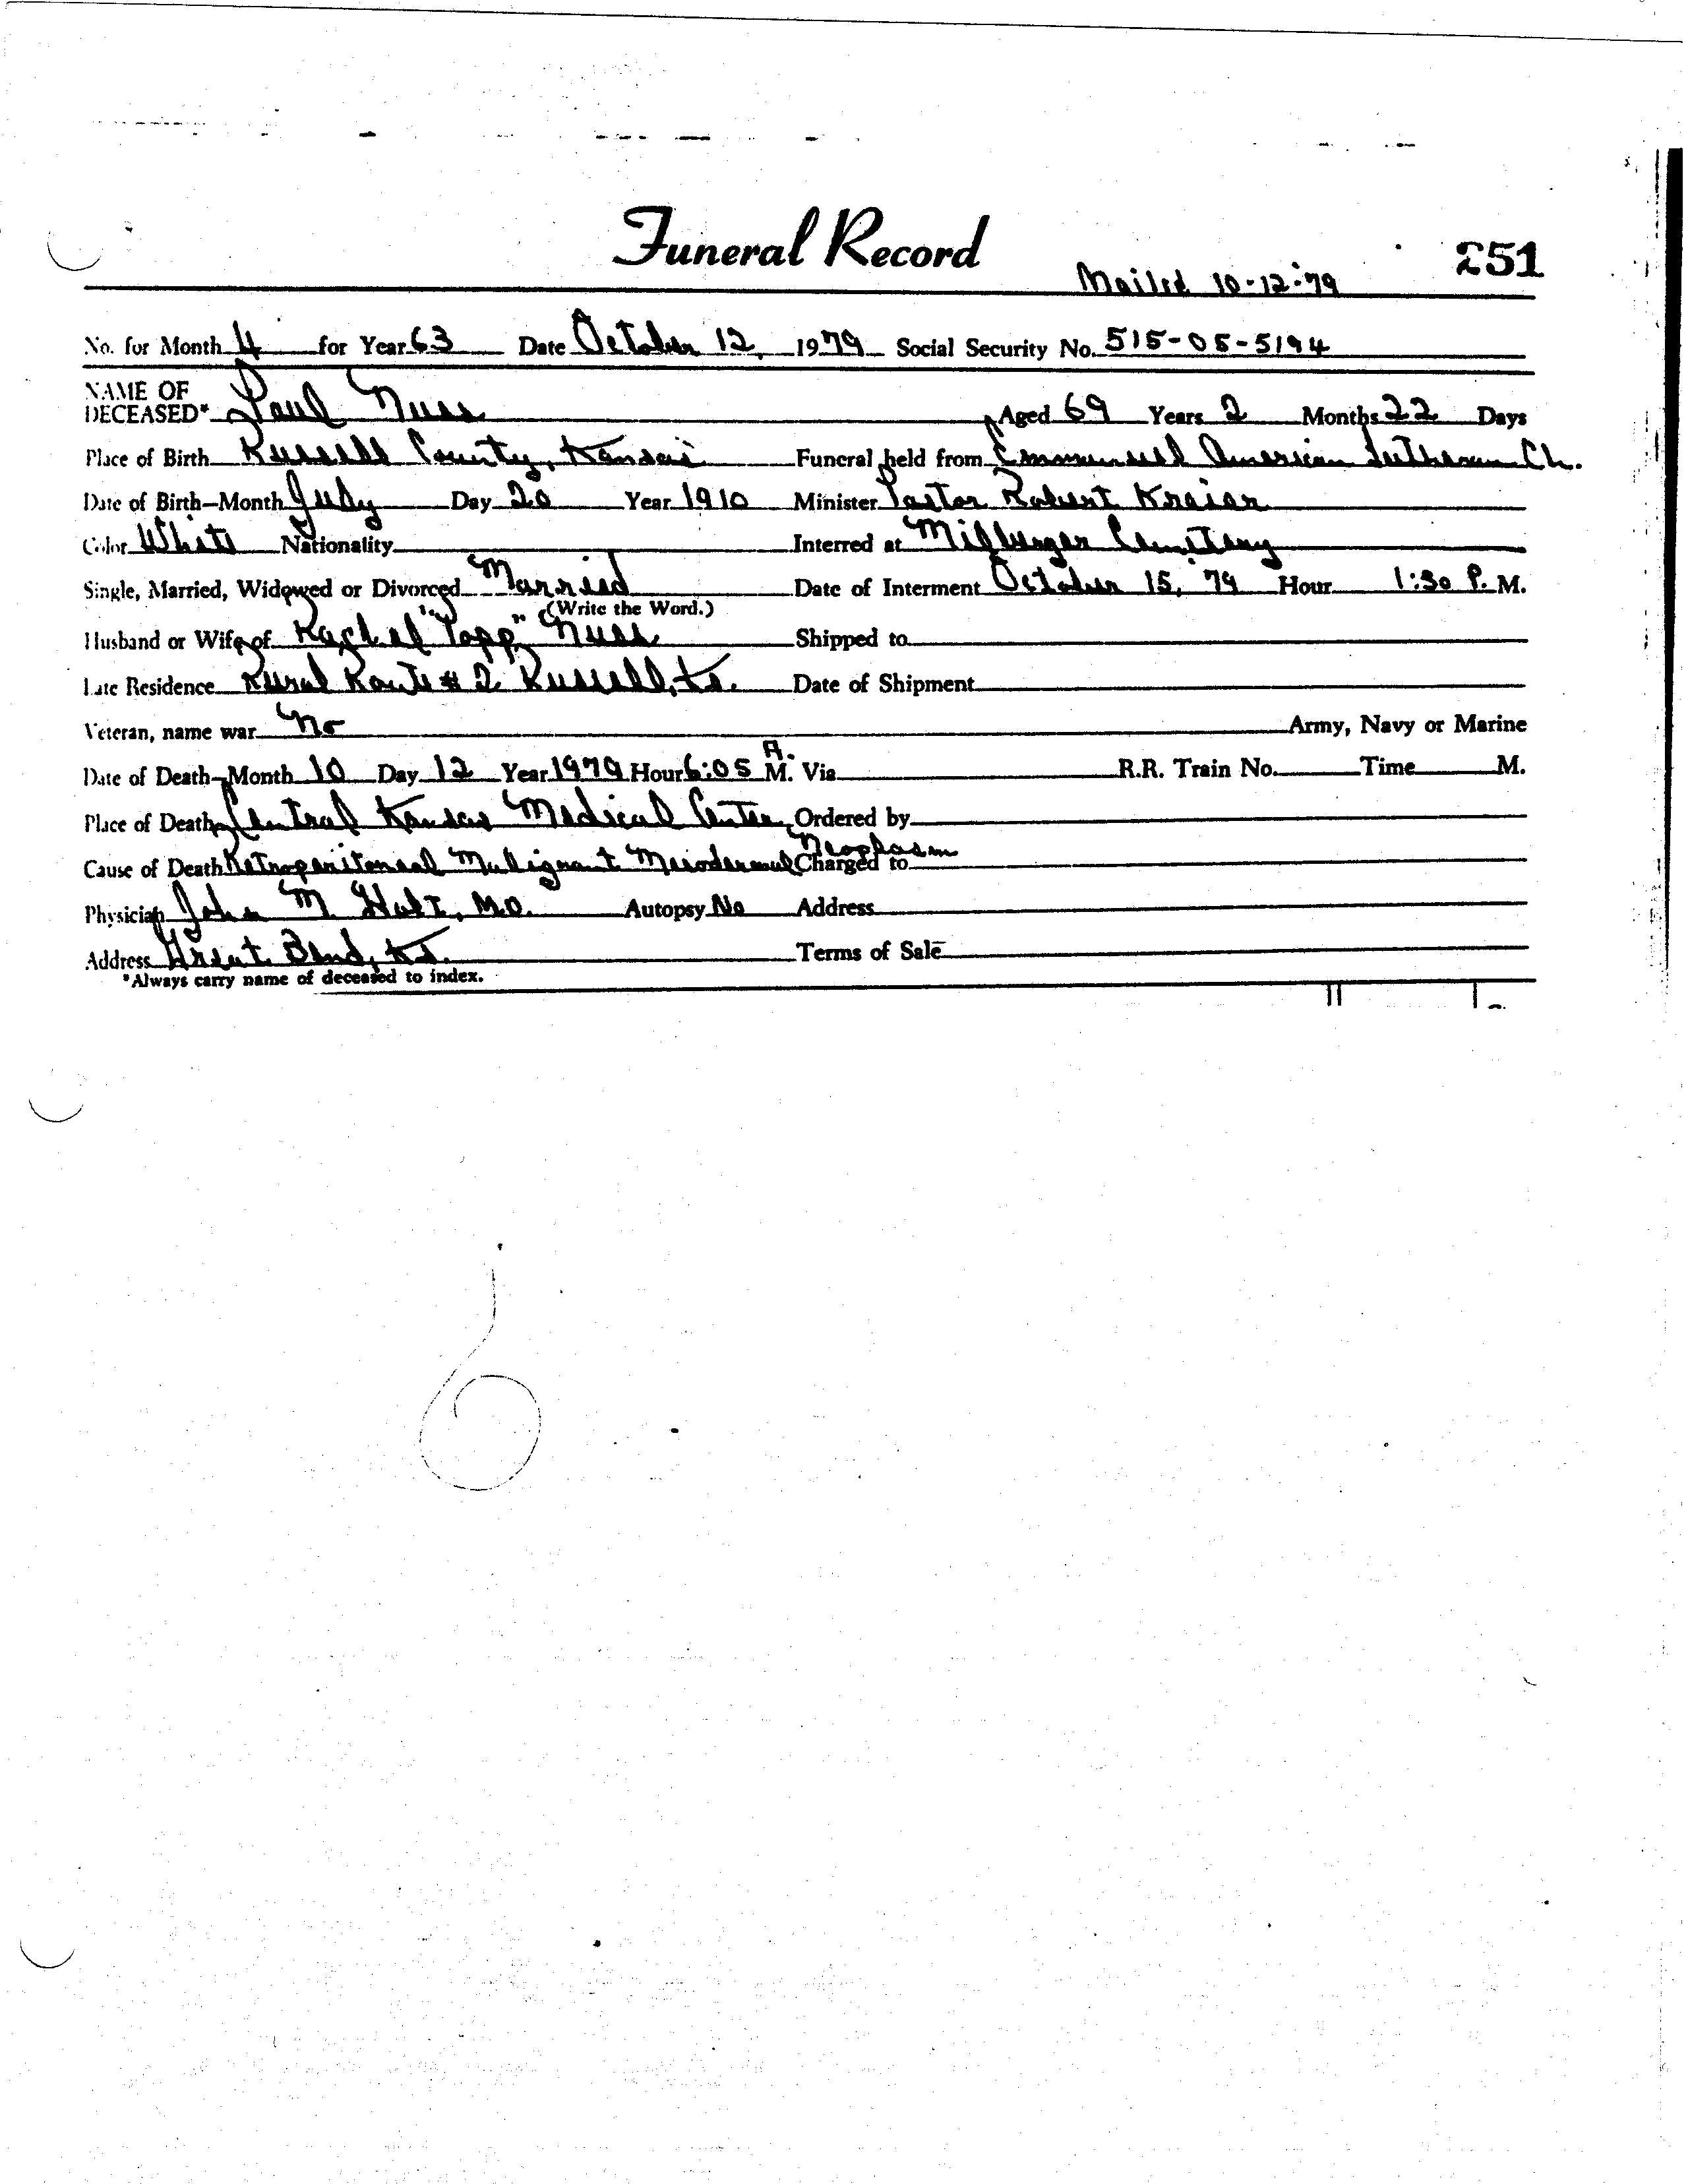 Funeral Record
Mailed 10-12-79
251
No. for Month 4 for Year 63 Date October 12, 1979 Social Security No. 515-05-5194
NAME OF DECEASED* Paul Nuss Aged 69 Years 2 Months 22 Days
Place of Birth Russell County, Kansas Funeral held from Emmanuel American Lutheran Ch.
Date of Birth—Month July Day 20 Year 1910 Minister Pastor Robert
Color White Nationality Interred at Milberger Cemetery
Single, Married, Widowed or Divorced Married Date of Interment October 15, 79 Hour 1:30 P. M.
(Write the Word.)
Husband or Wife of Rachel "Popp" Nuss Shipped to
Late Residence Rural Route # 2 Russell, Ks. Date of Shipment
Veteran, name war No Army, Navy or Marine
Date of Death—Month 10 Day 12 Year 1979 Hour 6:05 A. M. Via R.R. Train No. Time M.
Place of Death Central Kansas Medical Center Ordered by
Cause of Death Retroperitoneal Malignant Mesodermal Neoplasm Charged to
Physician John M. Holt, M.D. Autopsy No Address
Address Great Bend, Ks. Terms of Sale
*Always carry name of deceased to index.